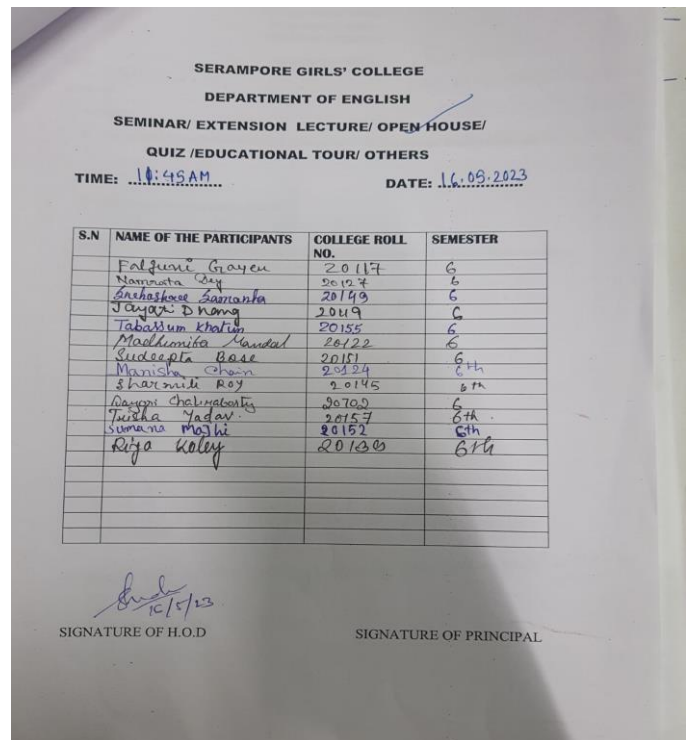 SERAMPORE GIRLS' COLLEGE
DEPARTMENT OF ENGLISH
SEMINAR/ EXTENSION LECTURE/ OPEN HOUSE/
QUIZ /EDUCATIONAL TOUR/ OTHERS
TIME: 10:45 AM DATE: 16.05.2023
S.N NAME OF THE PARTICIPANTS COLLEGE ROLL NO. SEMESTER
Falguni Gayen 20117 6
Namrata Dey 20127 6
Snehashree Samanta 20149 6
Jayati Dhang 6
Tabassum Khatun 20155 6
Madhumita Mandal 20122 6
Sudeepta Bose 20151 6
Manisha Chain 20124 6th
Sharmili Roy 20145 6th
Chakraborty 20702 6
Trisha Yadav. 20157 6th.
Sumana Majhi 20152 6th
Riya Koley 6th
16/5/23
SIGNATURE OF H.O.D SIGNATURE OF PRINCIPAL